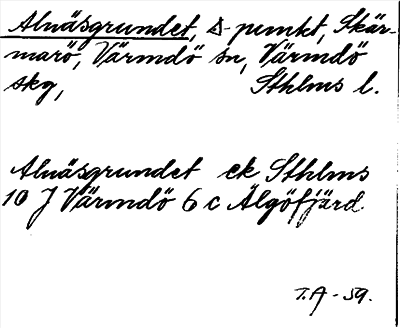 Alnäsgrundet, Δ-punkt, Skär-
marö, Värmdö sn, Värmdö
skg, Sthlms l.
Alnäsgrundet ek Sthlms
10 J Värmdö 6 c Älgöfjärd
T.A -59.